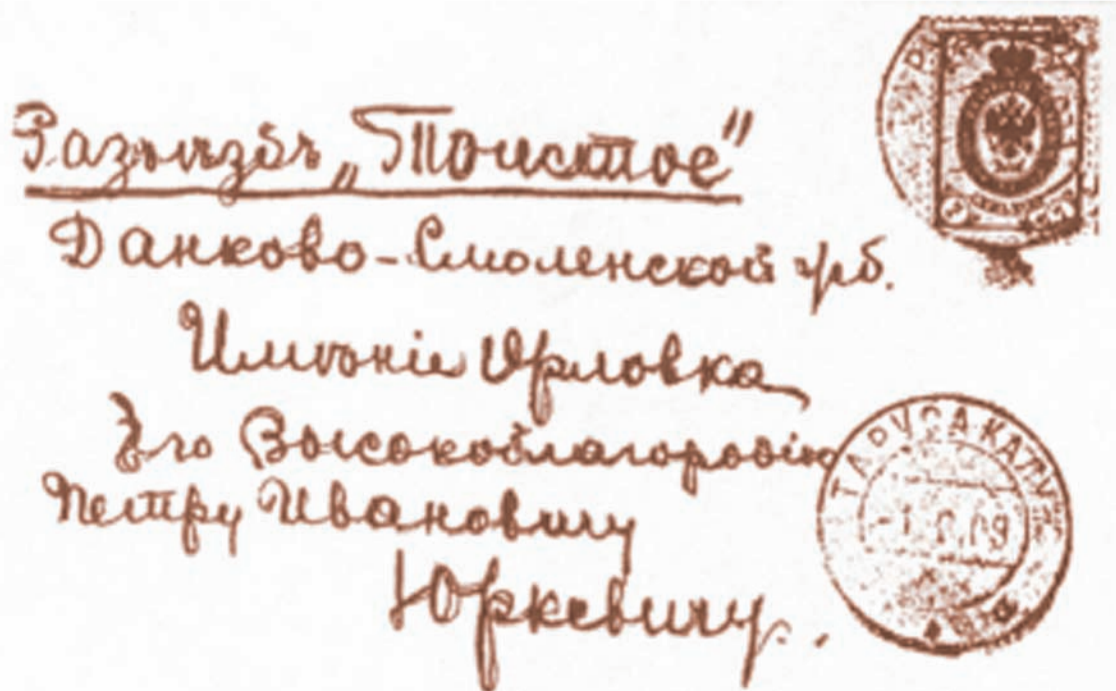 Разъѣздъ „Толстое"
Данково-Смоленской ж/д.
Имѣніе Орловка
Его Высокоблагородію
Петру Ивановичу
Юркевичу.
ТАРУСА КАЛУЖ